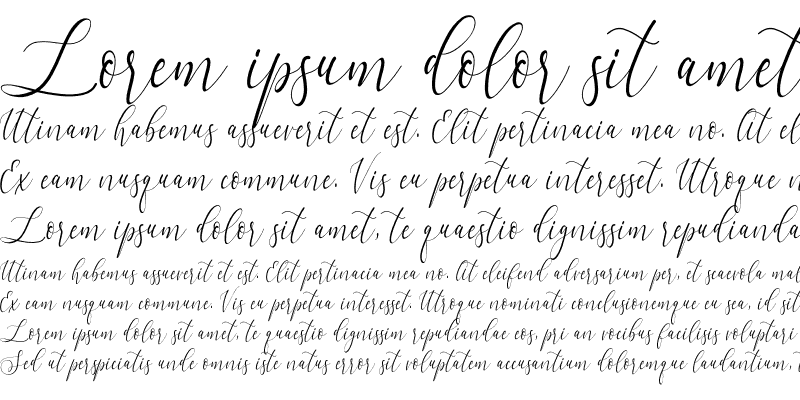 Lorem ipsum dolor sit amet
Utinam habemus assueverit et est. Elit pertinacia mea no. At el
Ex eam nusquam commune. Vis eu perpetua interesset. Utroque n
Lorem ipsum dolor sit amet, te quaestio dignissim repudianda
Utinam habemus assueverit et est. Elit pertinacia mea no. At eleifend adversarium per, et scaevola mal
Ex eam nusquam commune. Vis eu perpetua interesset. Utroque nominati conclusionemque eu sea, id sit
Lorem ipsum dolor sit amet, te quaestio dignissim repudiandae eos, pri an vocibus facilisis voluptari
Sed ut perspiciatis unde omnis iste natus error sit voluptatem accusantium doloremque laudantium, t